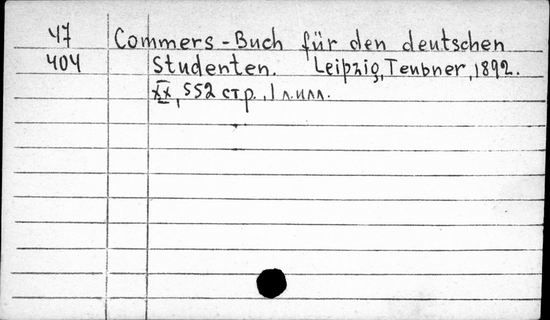 47 Commers-Buch für den deutschen
404 Studenten. Leipzig, Teubner, 1892.
XX, 552 стр., 1 л. илл.